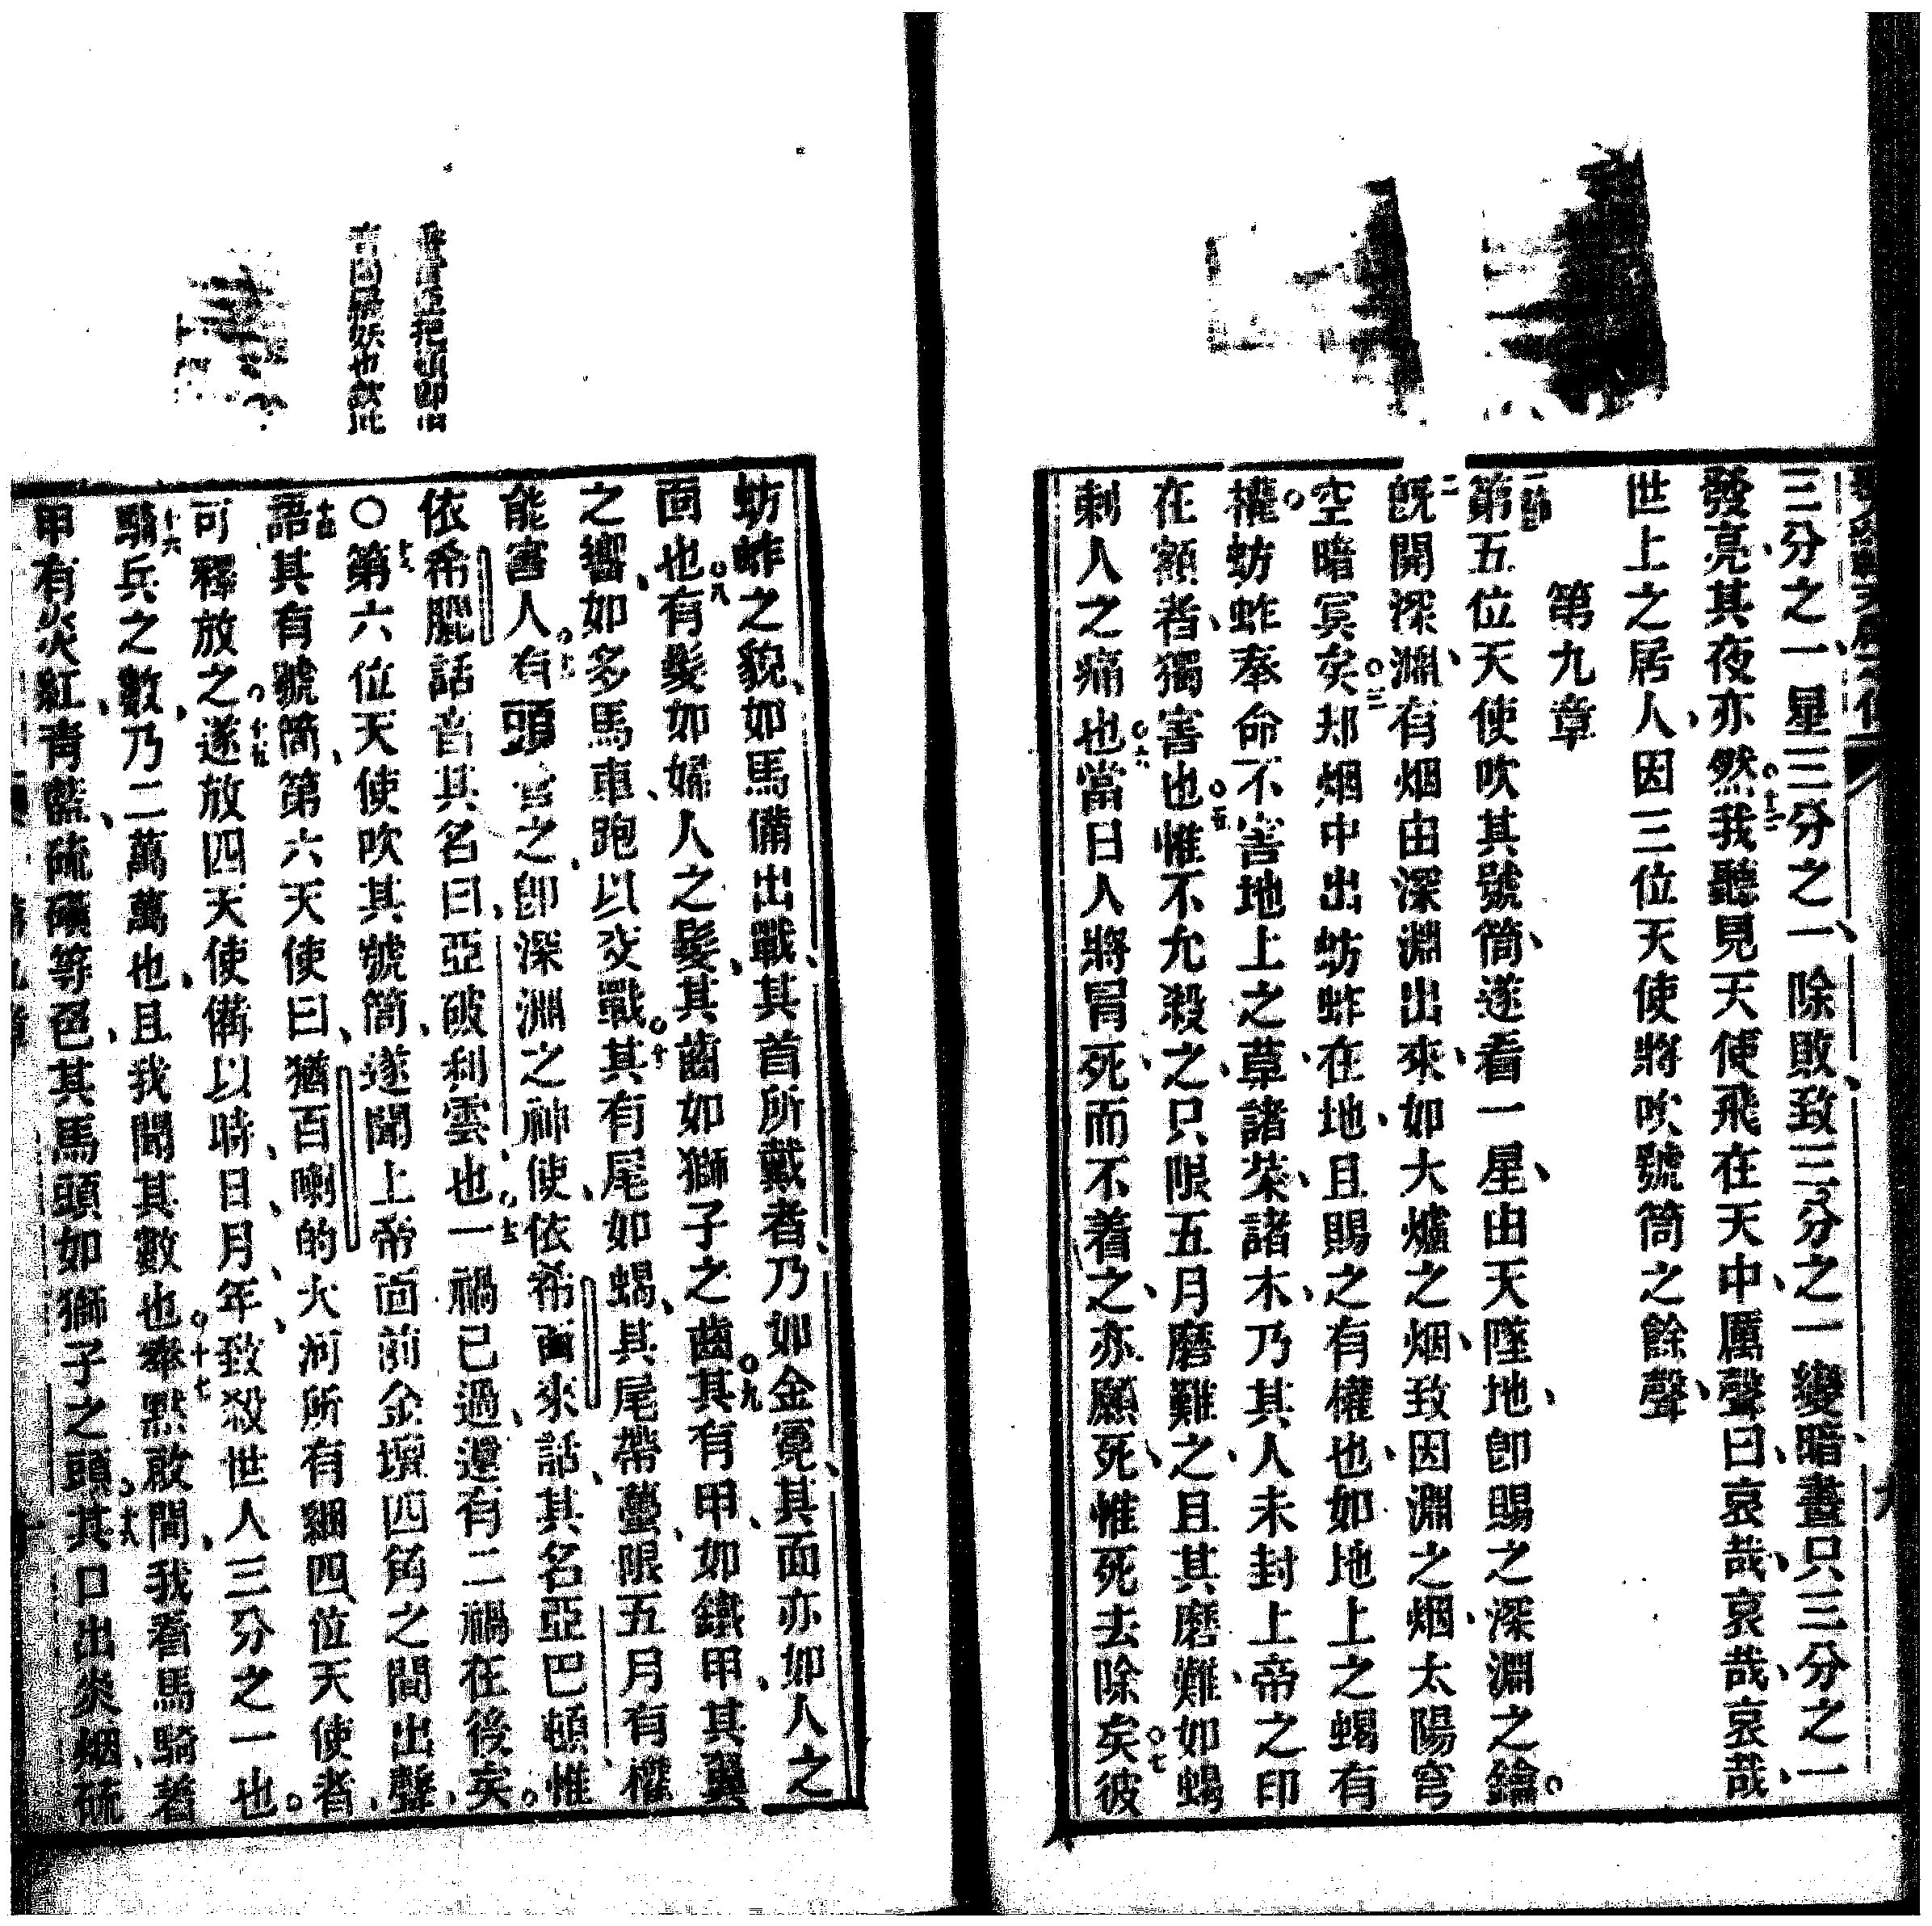 三分之一星三分之一除敗致三分之一變暗晝只三分之一
發亮其夜亦然〇十三我聽見天使飛在天中厲聲曰哀哉哀哉哀哉
世上之居人因三位天使將吹號筒之餘聲
第九章
第五位天使吹其號筒遂看一星由天墜地卽賜之深淵之鑰〇
二既開深淵有烟由深淵出來如大爐之烟致因淵之烟太陽穹
空暗冥矣〇三邦烟中出蚄蚱在地且賜之有權也如地上之蝎有
權〇蚄蚱奉命不害地上之草諸菜諸木乃其人未封上帝之印
在額者獨害也〇五惟不允殺之只限五月磨難之且其磨難如蝎
刺人之痛也〇六當日人將冐死而不着之亦願死惟死去除矣〇七彼
蚄蚱之貌如馬備出戰其首所戴者乃如金冕其面亦如人之
面也〇八有髮如婦人之髮其齒如獅子之齒〇九其有甲如鐵甲其翼
之響如多馬車跑以交戰〇十其有尾如蝎其尾帶蠆限五月有權
能害人〇十一有頭官之卽深淵之神使依希畐來話其名亞巴頓惟
依希臘話音其名曰亞破利雲也〇十二一禍已過還有二禍在後矣〇
〇十三第六位天使吹其號筒遂聞上帝面前金壇四角之間出聲
十四語其有號筒第六天使曰猶百喇的大河所有綑四位天使者
可釋放之〇十五遂放四天使備以時日月年致殺世人三分之一也〇
十六騎兵之數乃二萬萬也且我聞其數也〇十七奉默啟間我看馬騎着
甲有炎紅青藍硫磺等色其馬頭如獅子之頭〇十八其口出炎烟硫